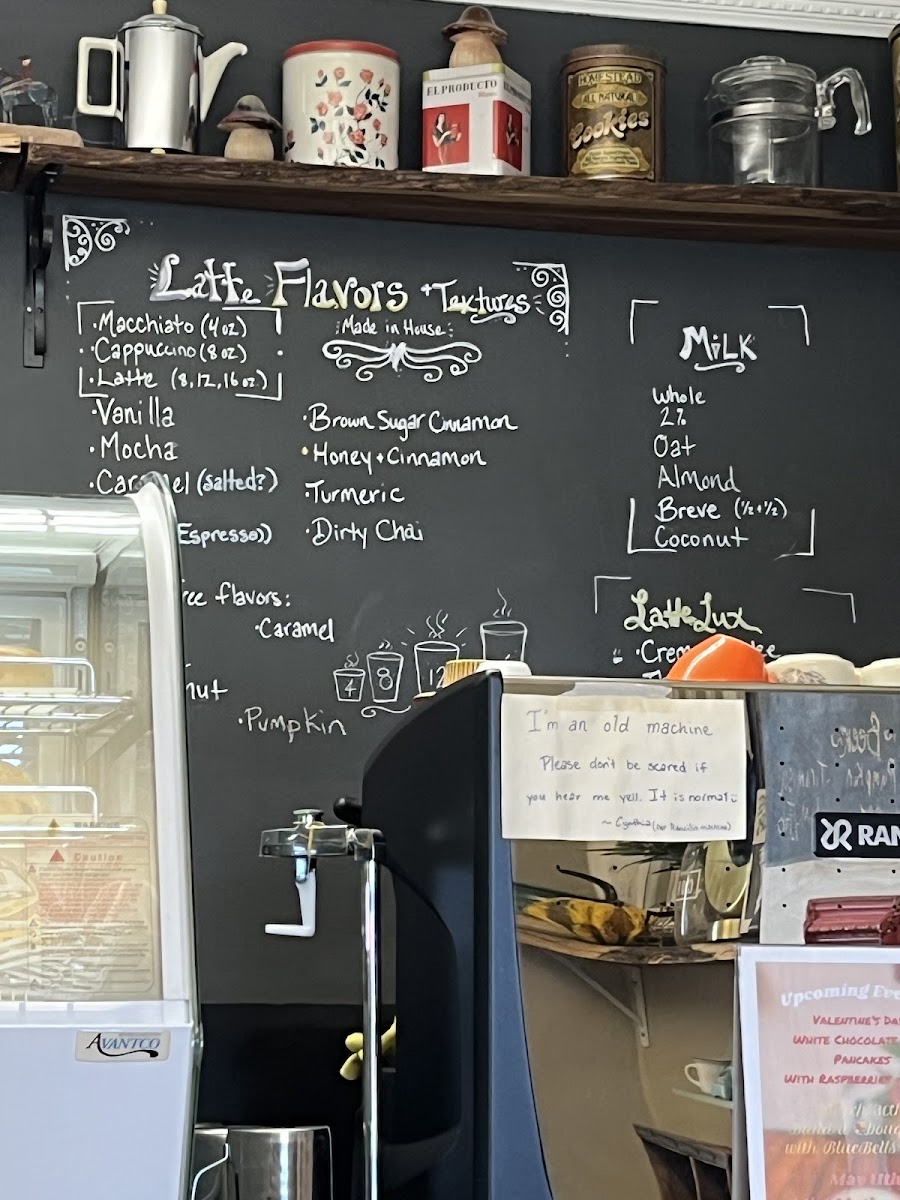 EL PRODUCTO
HOMESTEAD
ALL NATURAL
Cookies
Latte Flavors + Textures
Made in House
·Macchiato (4 oz)
·Cappuccino (8 oz)
·Latte (8, 12, 16 oz.)
·Vanilla
·Mocha
(salted?)
Espresso))
flavors:
·Caramel
·Pumpkin
·Brown Sugar Cinnamon
·Honey + Cinnamon
·Turmeric
·Dirty Chai
4
8
12
MiLK
Whole
2%
Oat
Almond
Breve (½+½)
Coconut
Latte Lux
I'm an old machine
Please don't be scared if
you hear me yell. It is normal
~ Cynthia (our Rancilio machine)
RAN
Caution
AVANTCO
Upcoming Eve
VALENTINE'S DA
WHITE CHOCOLATE
PANCAKES
WITH RASPBERRIES
with BlueBells